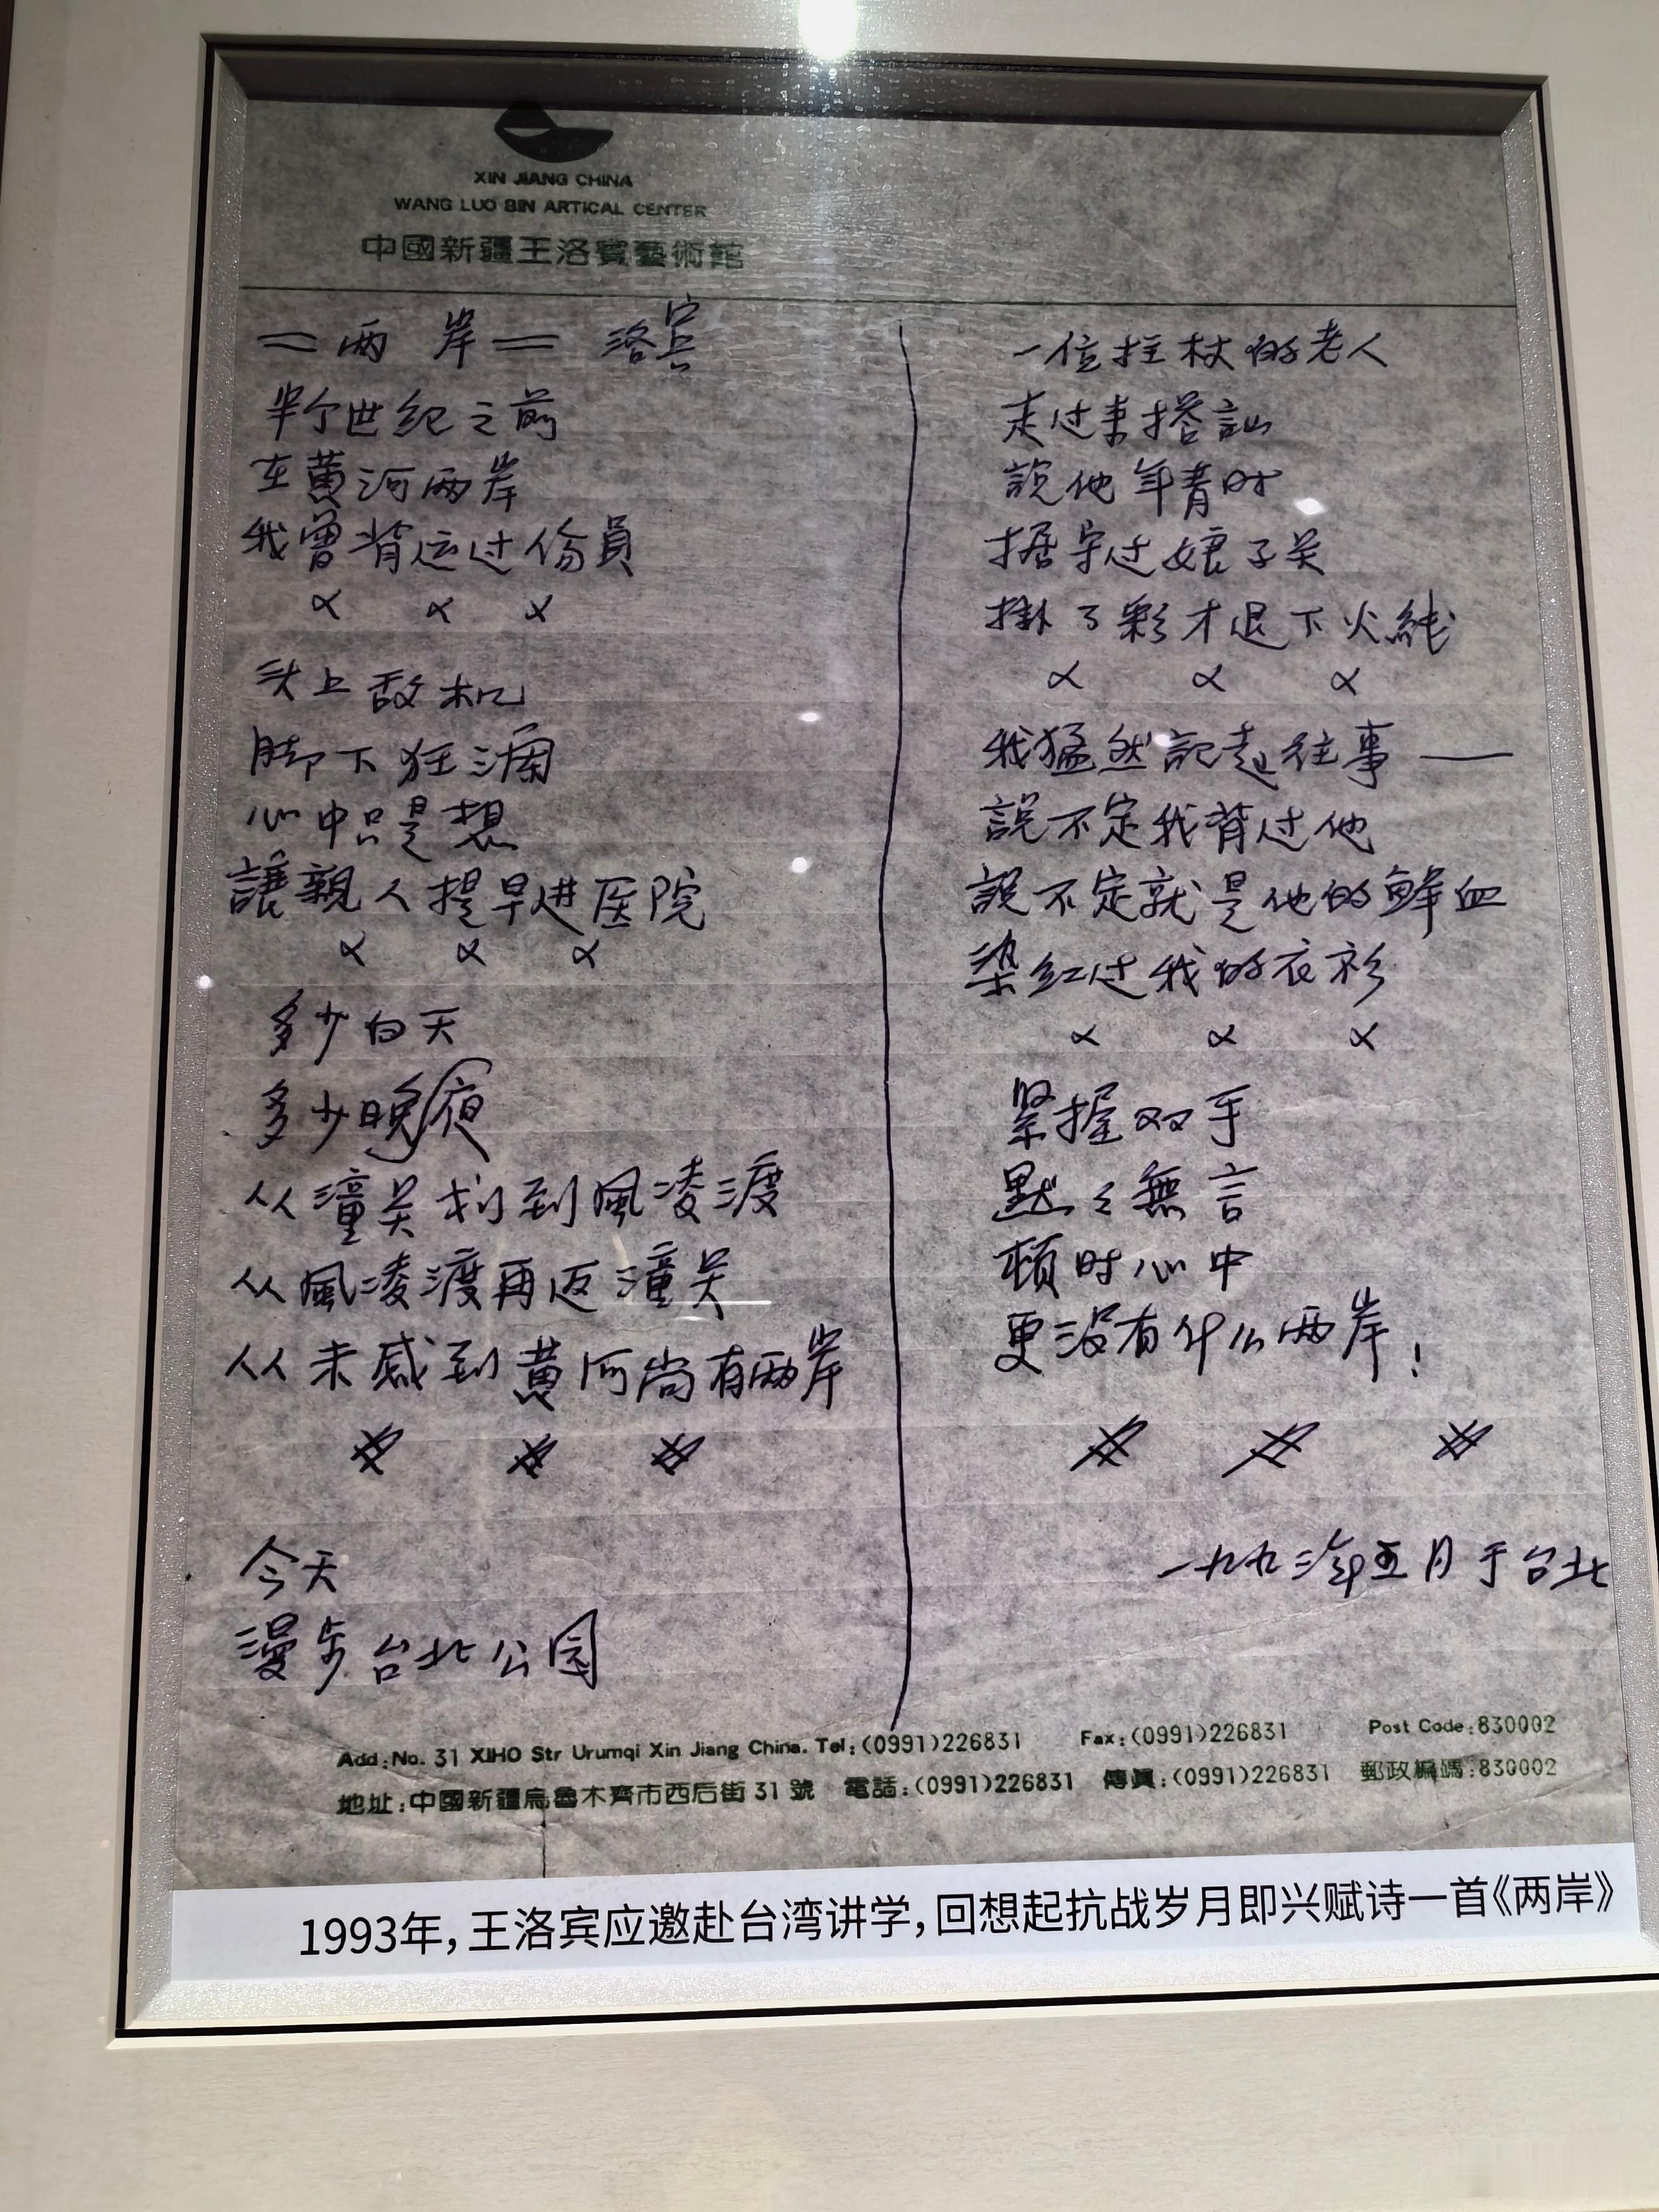 XIN JIANG CHINA
WANG LUO BIN ARTICAL CENTER
中國新疆王洛賓藝術館
=两 岸= 洛宾
半个世纪之前
在黄河两岸
我曾背运过伤員
× × ×
头上敌机
脚下狂澜
心中只是想
讓親人提早进医院
× × ×
多少白天
多少晚夜
从潼关划到風凌渡
从風凌渡再返潼关
从未感到黄河尚有两岸
今天
漫步台北公园
一位拄杖的老人
走过来搭訕
說他年青时
据守过娘子关
掛了彩才退下火綫
× × ×
我猛然記起往事——
說不定我背过他
說不定就是他的鲜血
染红过我的衣衫
× × ×
紧握双手
默々無言
顿时心中
更没有什么两岸!
一九九三年五月于台北
Add:No. 31 XIHO Str Urumqi Xin Jiang China. Tel:(0991)226831 Fax:(0991)226831 Post Code:830002
地址:中國新疆烏魯木齊市西后街31號 電話:(0991)226831 傳眞:(0991)226831 郵政編碼:830002
1993年,王洛宾应邀赴台湾讲学,回想起抗战岁月即兴赋诗一首《两岸》